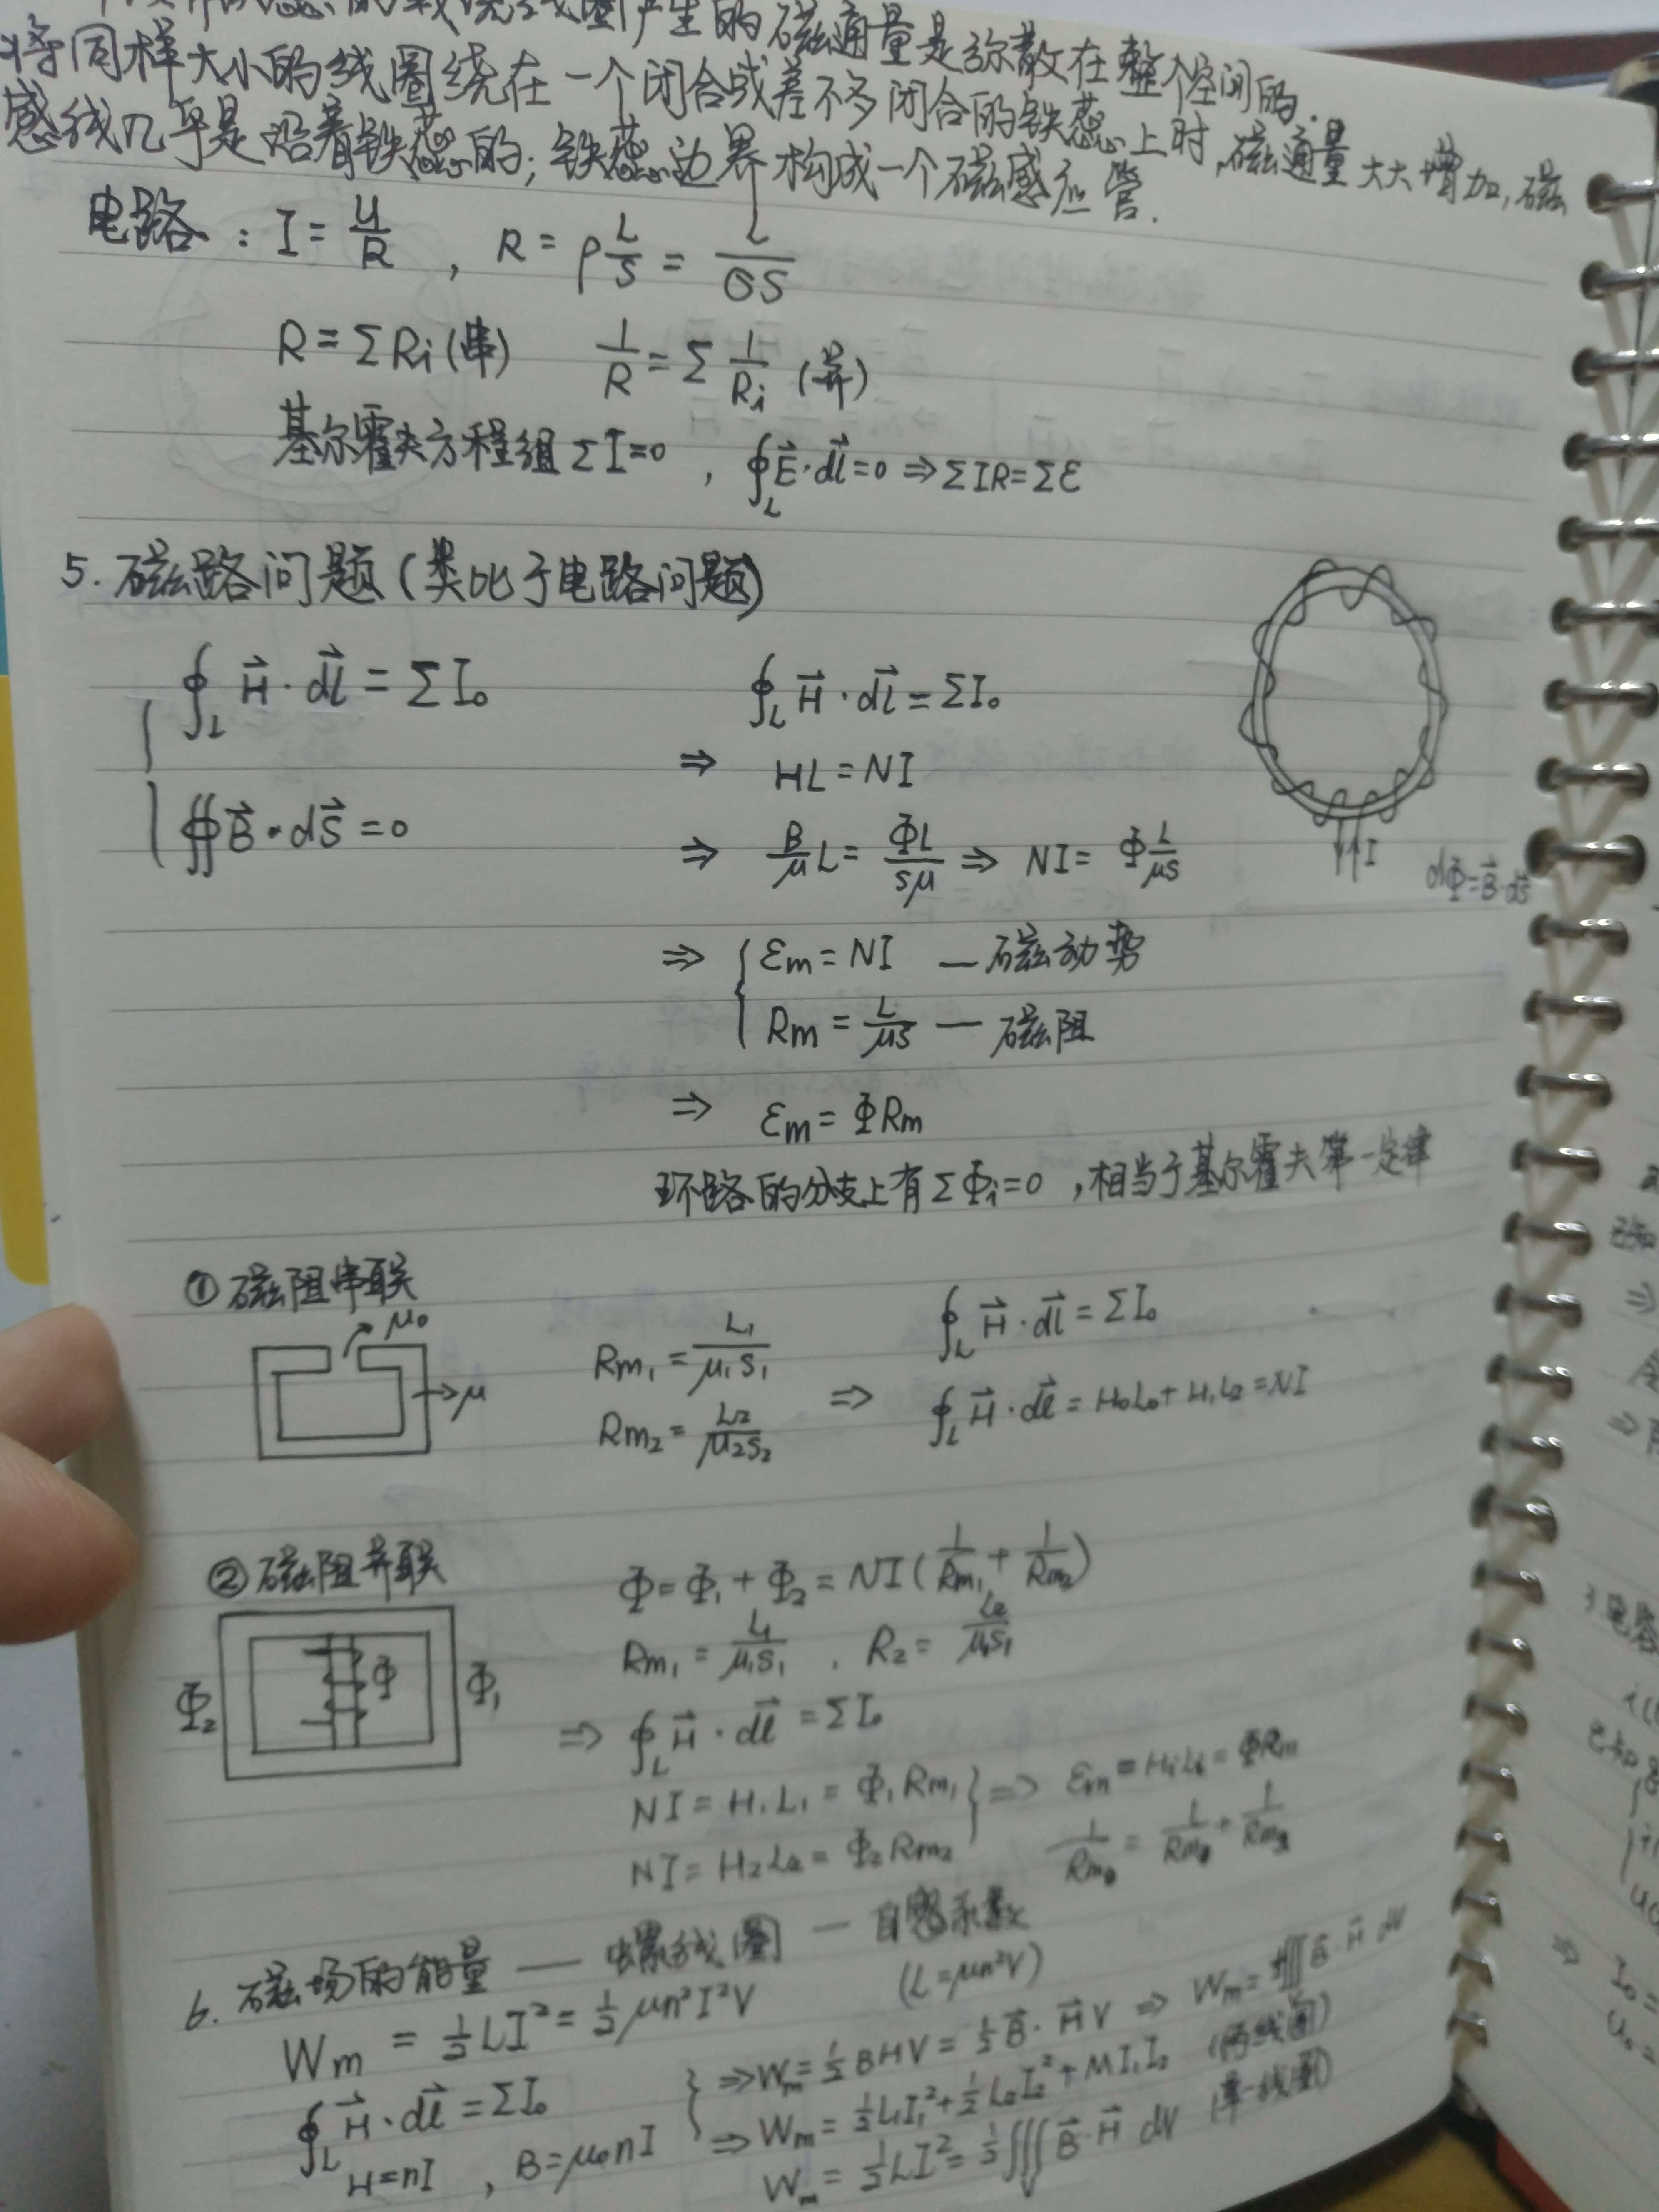 的载流线圈产生的磁通量是弥散在整个空间的.
将同样大小的线圈绕在一个闭合或差不多闭合的铁芯上时,磁通量大大增加,磁
感线几乎是沿着铁芯的;铁芯边界构成一个磁感应管.
电路: I = U/R , R = ρ L/S = L/σS
R = ΣRi (串) 1/R = Σ 1/Ri (并)
基尔霍夫方程组 ΣI=0 , ∮_L E⃗·dl⃗=0 ⇒ ΣIR=Σε
5. 磁路问题(类比于电路问题)
∮_L H⃗·dl⃗ = ΣI₀ ∮_L H⃗·dl⃗ = ΣI₀
⇒ HL = NI
∯ B⃗·dS⃗ = 0
⇒ B/μ L = ΦL/Sμ ⇒ NI = Φ L/μS
I
dΦ=B⃗·dS⃗
⇒ { εm = NI — 磁动势
Rm = L/μS — 磁阻
⇒ εm = ΦRm
环路的分支上有ΣΦi=0 ,相当于基尔霍夫第一定律
① 磁阻串联
μ₀
μ
Rm₁ = L₁/μ₁S₁ ∮_L H⃗·dl⃗ = ΣI₀
Rm₂ = L₂/μ₂S₂ ⇒ ∮_L H⃗·dl⃗ = H₀L₀ + H₁L₂ = NI
② 磁阻并联
Φ₂ Φ Φ₁
Φ = Φ₁ + Φ₂ = NI(1/Rm₁ + 1/Rm₂)
Rm₁ = L₁/μ₁S₁ , R₂ = L₂/μ₁S₁
⇒ ∮_L H⃗·dl⃗ = ΣI₀
NI = H₁L₁ = Φ₁Rm₁ } ⇒ εm = HiLi = ΦRm
NI = H₂L₂ = Φ₂Rm₂
6. 磁场的能量 — 螺线圈 — 自感系数
(L=μn²V)
Wm = ½LI² = ½μn²I²V
∮_L H⃗·dl⃗ = ΣI₀
H=nI , B=μ₀nI
⇒ Wm = ½BHV = ½B⃗·H⃗V ⇒ Wm = ½∭B⃗·H⃗ dV
⇒ Wm = ½L₁I₁² + ½L₂I₂² + MI₁I₂ (两线圈)
Wm = ½LI² = ½∭_V B⃗·H⃗ dV (单一线圈)
已知
⇒
3.电容
已知
⇒ I₀=
U₀=